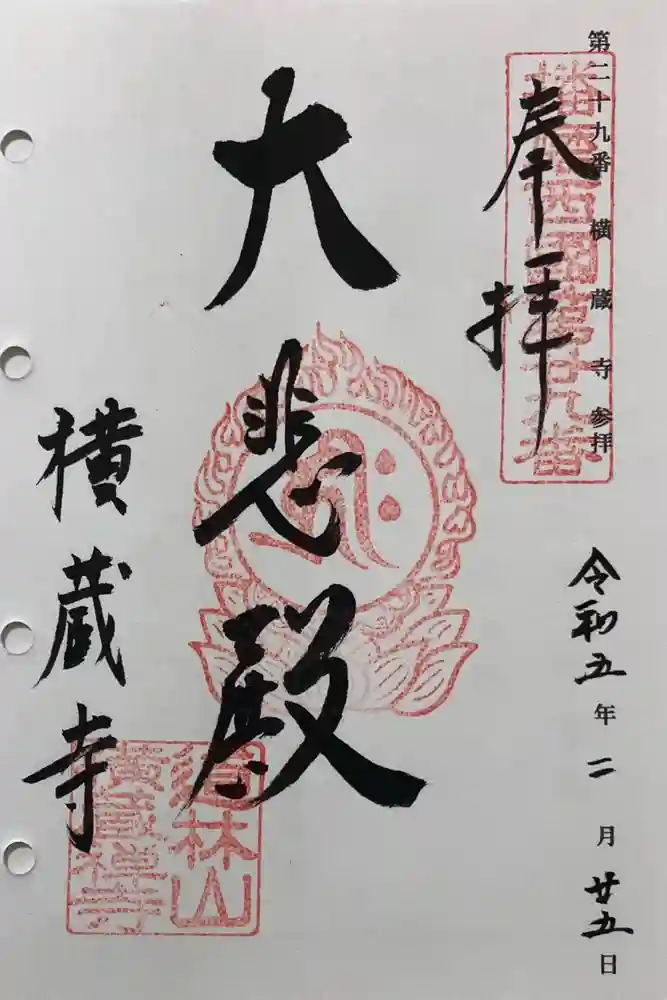 第二十九番 横蔵寺参拝
播磨西國第廿九番
奉拝
令和五年二月廿五日
大悲殿
横蔵寺
道林山
横蔵禅寺